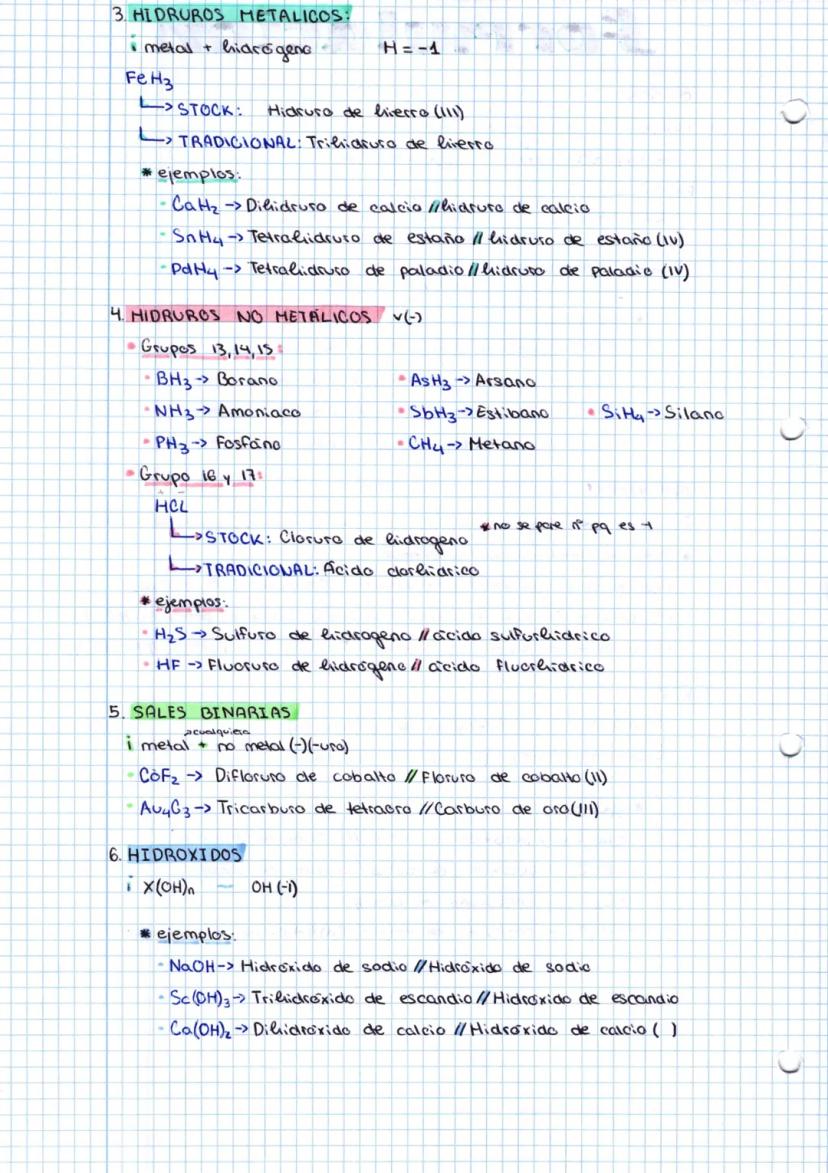 3. HIDRUROS METALICOS:
¡ metal + hidrógeno H = -1
FeH3
↳ STOCK: Hidruro de hierro (III)
↳ TRADICIONAL: Trihidruro de hierro
* ejemplos:
· CaH2 -> Dihidruro de calcio // hidruro de calcio
· SnH4 -> Tetrahidruro de estaño // hidruro de estaño (IV)
· PdH4 -> Tetrahidruro de paladio // hidruro de paladio (IV)
4. HIDRUROS NO METÁLICOS v(-)
• Grupos 13, 14, 15:
· BH3 -> Borano • AsH3 -> Arsano
· NH3 -> Amoniaco • SbH3 -> Estibano • SiH4 -> Silano
· PH3 -> Fosfano • CH4 -> Metano
• Grupo 16 y 17:
+ -
HCL
↳ STOCK: Cloruro de hidrogeno * no se pone nº pq es -1
↳ TRADICIONAL: Ácido clorhídrico
* ejemplos:
· H2S -> Sulfuro de hidrogeno // ácido sulfurhídrico
· HF -> Fluoruro de hidrógeno // ácido fluorhídrico
5. SALES BINARIAS
cualquiera
¡ metal + no metal (-)(-uro)
• CoF2 -> Difloruro de cobalto // Floruro de cobalto (II)
• Au4C3 -> Tricarburo de tetraoro // Carburo de oro (III)
6. HIDROXIDOS
¡ X(OH)n — OH (-1)
* ejemplos:
· NaOH -> Hidróxido de sodio // Hidróxido de sodio
· Sc(OH)3 -> Trihidróxido de escandio // Hidróxido de escandio
· Ca(OH)2 -> Dihidróxido de calcio // Hidróxido de calcio ( )